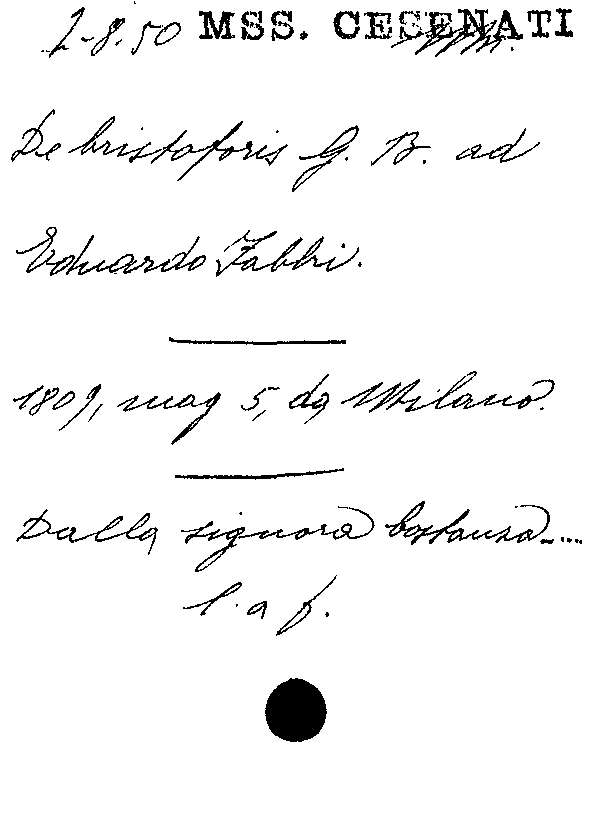 2-8.50 MSS. CESENATI
De Cristoforis G. B. ad
Eduardo Fabbri.
1809, mag 5, da Milano.
Dalla signora Costanza....
l. a f.